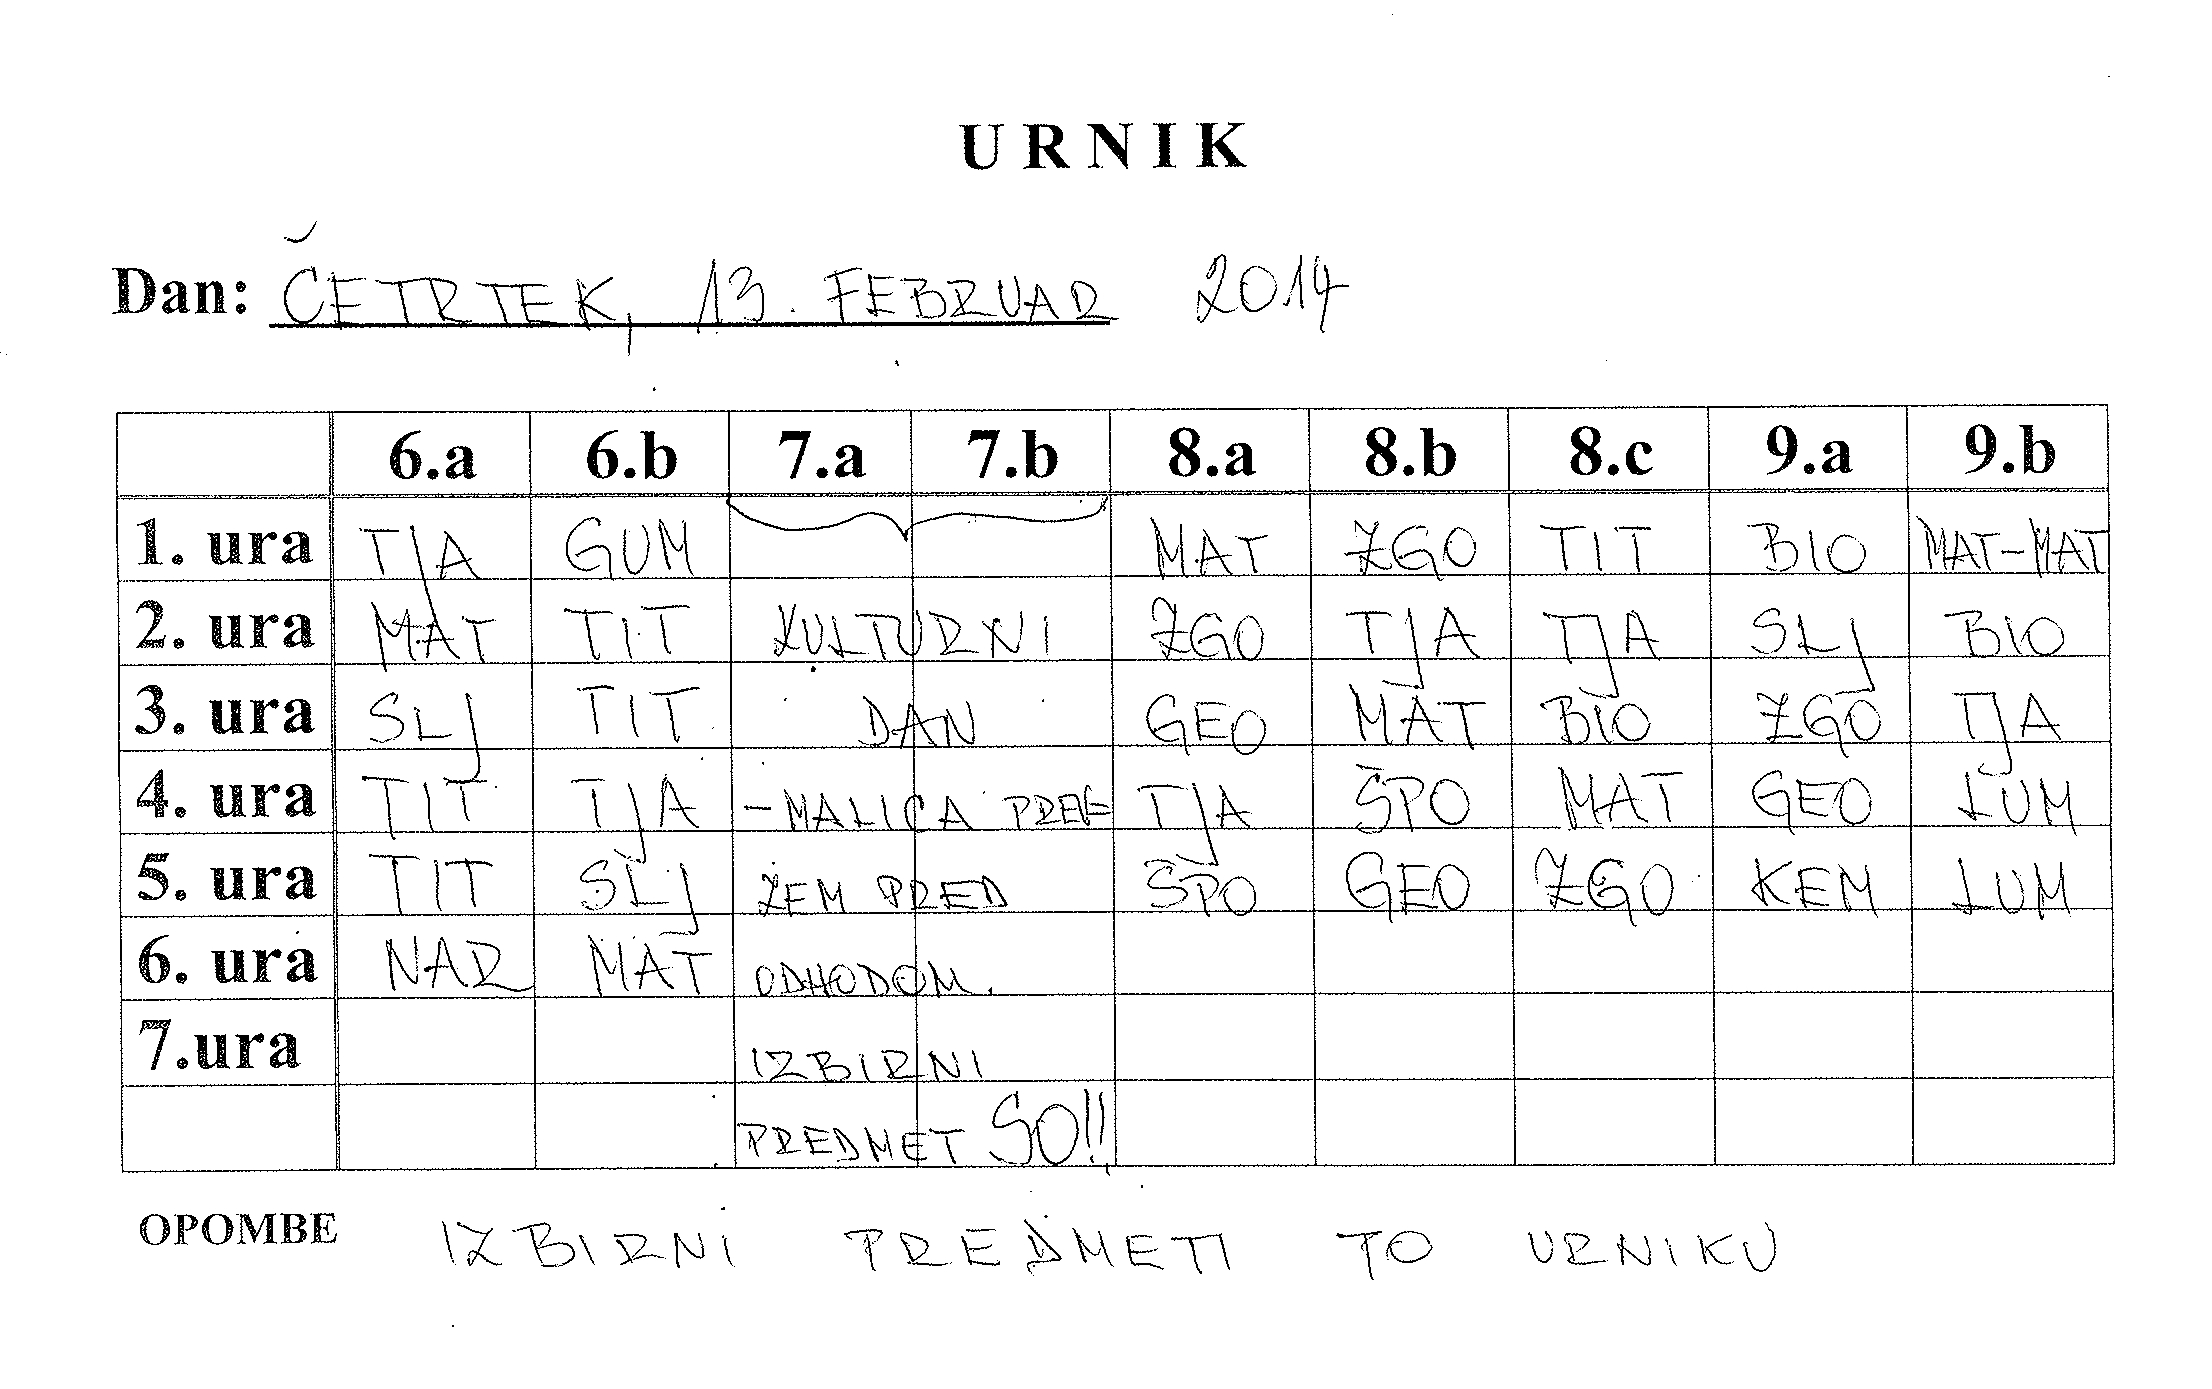 URNIK
Dan: ČETRTEK, 13. FEBRUAR 2014
6.a 6.b 7.a 7.b 8.a 8.b 8.c 9.a 9.b
1. ura TJA GUM MAT ZGO TIT BIO MAT-MAT
2. ura MAT TIT KULTURNI ZGO TJA TJA SLJ BIO
3. ura SLJ TIT DAN GEO MAT BIO ZGO TJA
4. ura TIT TJA -MALICA PREV- TJA ŠPO MAT GEO LUM
5. ura TIT SLJ ZEM PRED ŠPO GEO ZGO KEM LUM
6. ura NAR MAT ODHODOM.
7.ura IZBIRNI
PREDMET SO!!
OPOMBE IZBIRNI PREDMETI PO URNIKU